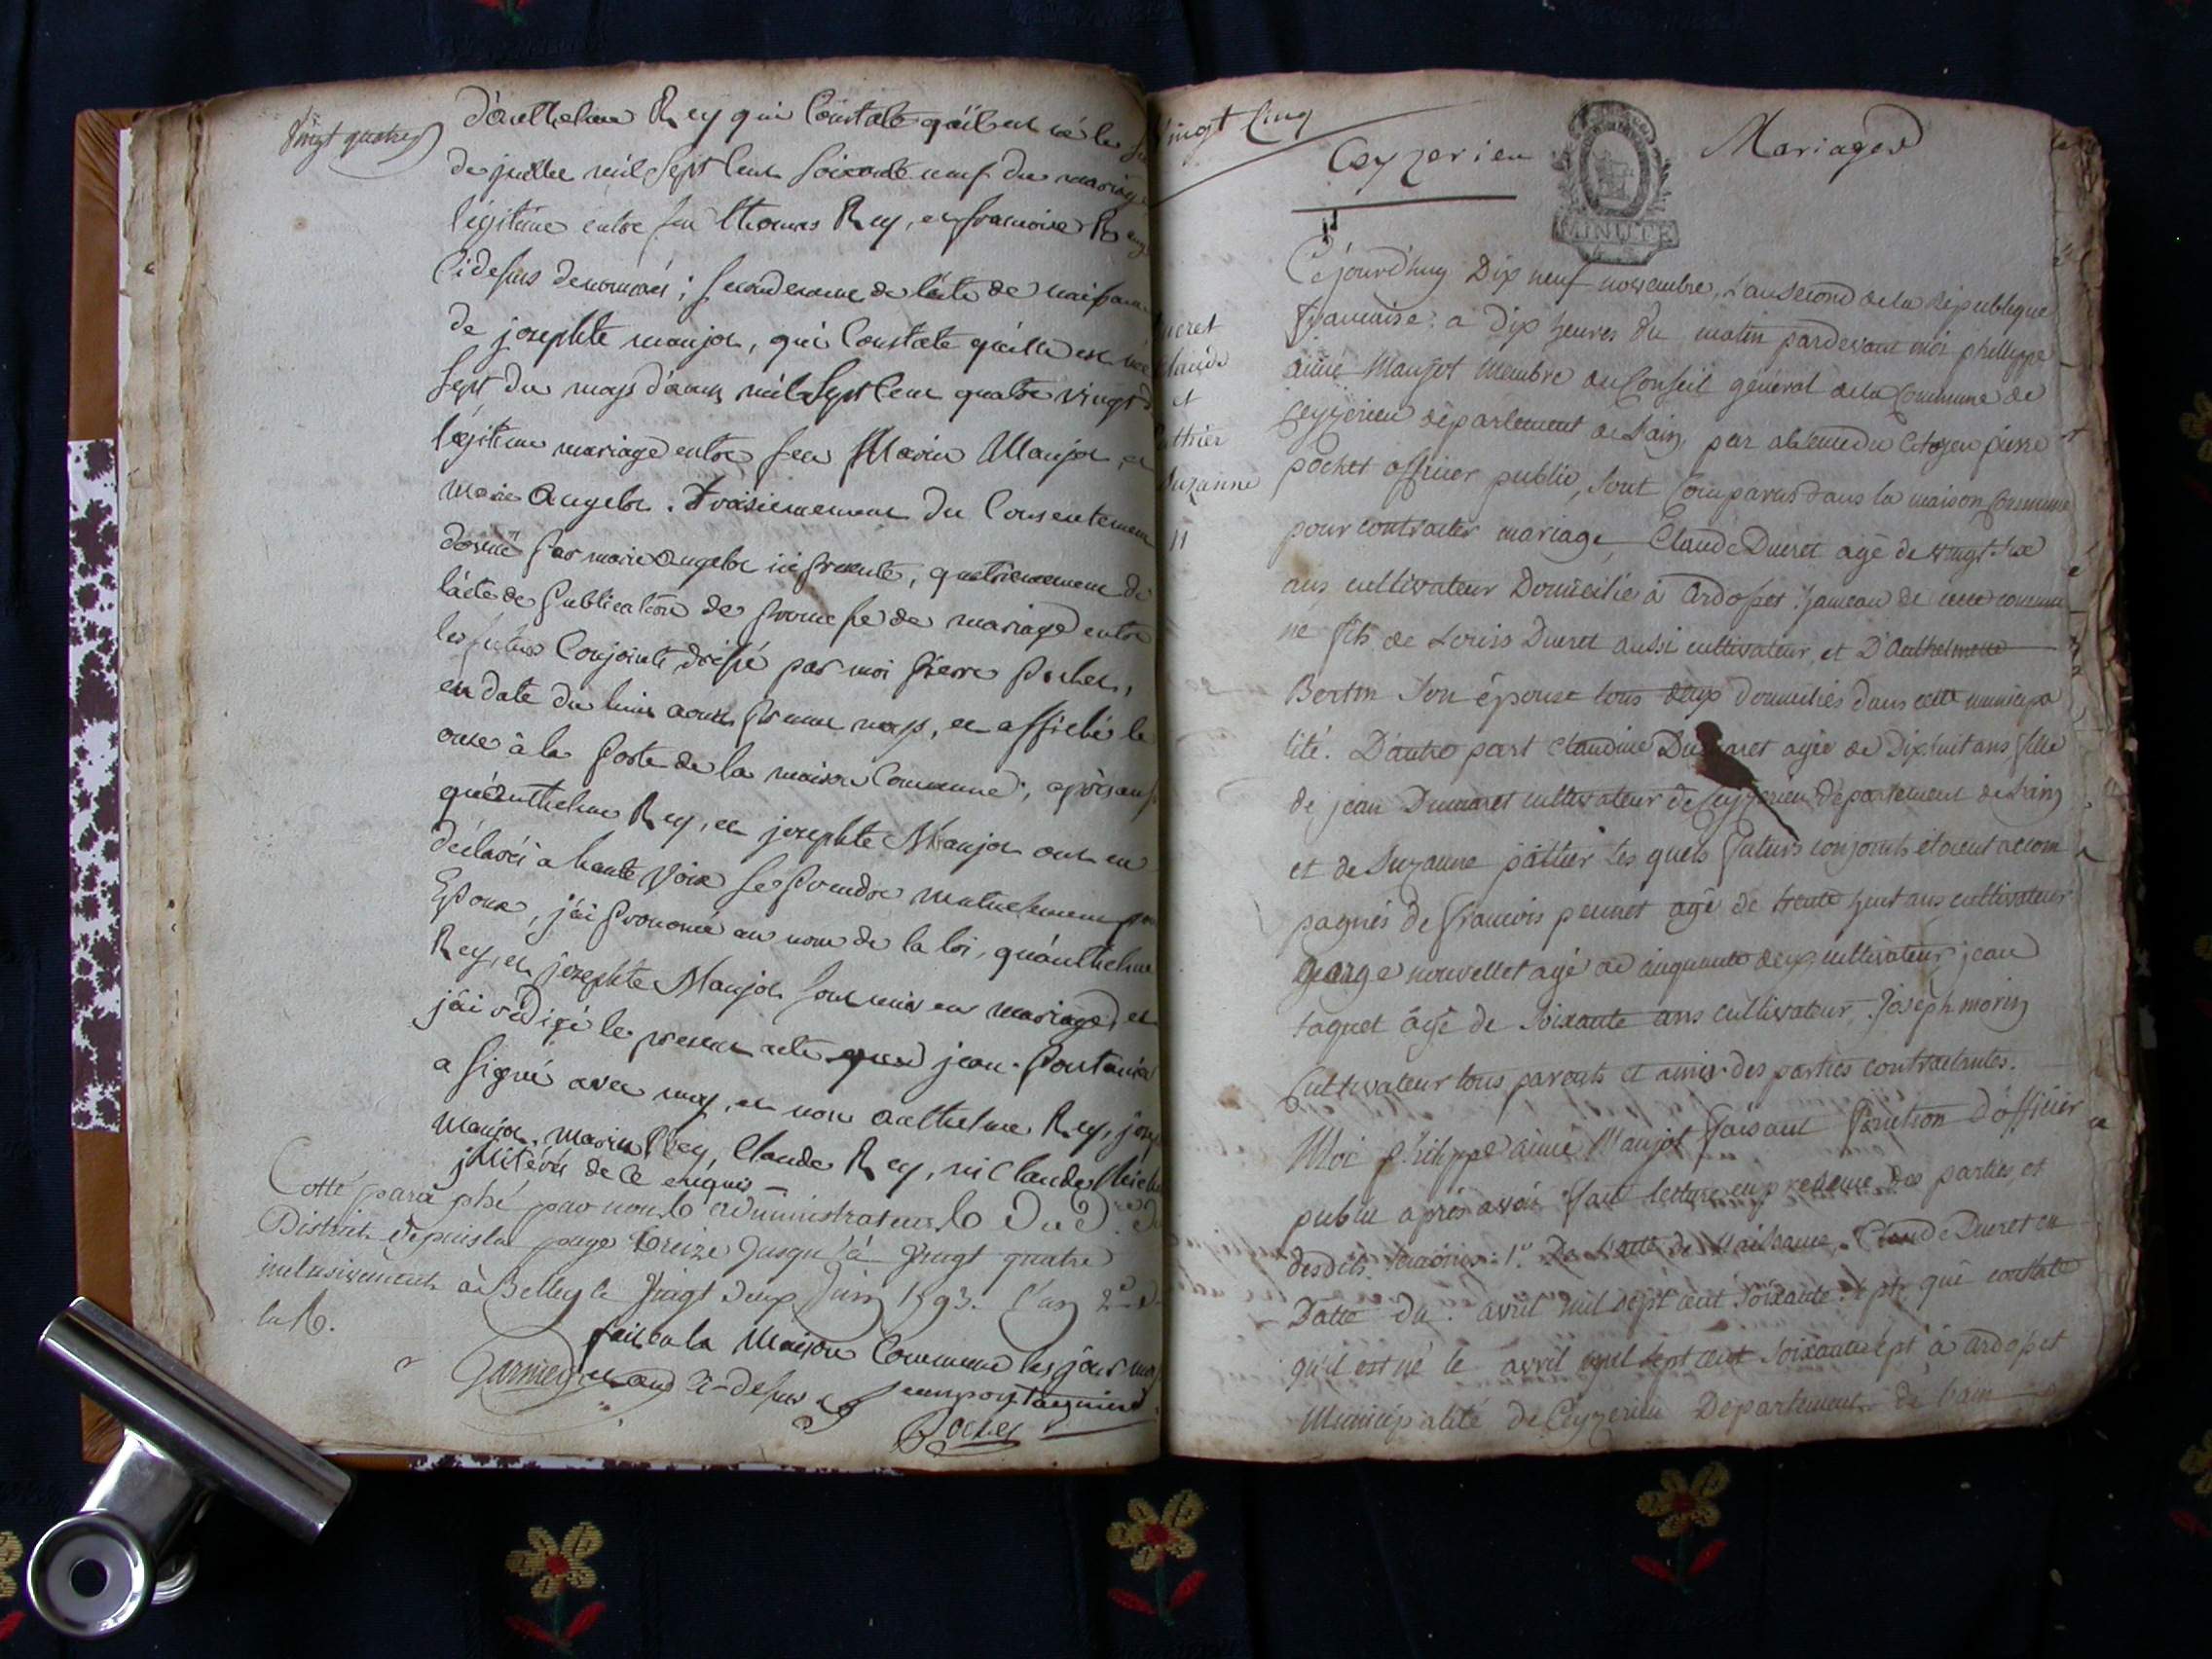 Vingt quatre
d'anthelme Rey qui Constate qu'il est né le
de juillet mil sept cent soixante neuf du mariage
légitime entre feu thomas Rey, et francoise Rey
Ci desus denommés; secondement de l'acte de naissance
de josephte manjot, qui Constate qu'elle est née
sept du moys d'aoust mil sept cent quatre vingt
légitime mariage entre feu Marin Manjot, et
marie Angelot. troisiemement du Consentement
donné par marie angelot ici presente, quatriemement de
l'acte de publication de promesse de mariage entre
les futurs Conjoints dressé par moi pierre pochet,
en date du huit aoust present moys, et affiché le
onze à la porte de la maison Commune; après aussi
qu'anthelme Rey, et josephte Manjot ont eu
déclarés a haute voix se prendre mutuelement pour
Epoux, j'ai prononcé au nom de la loi, qu'anthelme
Rey, et josephte Manjot sont unis en mariage, et
j'ai rédigé le present acte que jean pontanier
a signé avec moy, et non anthelme Rey, josephte
manjot, marin Rey, Claude Rey, ni Claude Michel
illitérés de ce enquis
Cotté paraphé par nous administrateur du d.re du
District depuis la page treize jusqu'à vingt quatre
inclusivement à Belley le vingt deux juin 1793. l'an 2e d
la R.
fait en la Maison Commune les jour moy
Garnier et an ci-desus jean pontannier
Pochet
Vingt Cinq
Ceyzerieu Mariages
MINUTE
Ducret
Claude
et
pathier
Suzanne
11
Cejourd'huy Dix neuf novembre, l'an second de la république
francaise, a dix heures du matin pardevant moi phelippe
aimé Manjot membre du Conseil général de la Commune de
Ceyzerieu département de l'ain, par absence du Citoyen pierre
pochet officier public, sont Comparus dans la maison Commune
pour contracter mariage, Claude Ducret agé de vingt six
ans cultivateur Domicilié à Ardosset hameau de cette commu
né fils de Louis Ducret aussi cultivateur, et D'Anthelmette
Bertin son épouse tous deux domiciliés dans cette municipa
lité. D'autre part Claudine Dumaret agée de Dix huit ans fille
de jean Dumaret cultivateur de Ceyzerieu département de l'ain
et de Suzanne pâttier les quels futurs conjoints étoient accom
pagnés de francois pennet agé de trente huit ans cultivateur
george nouvellet agé de cinquante deux, cultivateur, jean
taquet âgé de Soixante ans cultivateur. Joseph morin
Cultivateur tous parents et amis des parties contractantes.
Moi philippe aimé Manjot faisant fonction d'officier
public après avoir fait lecture en presence des parties, et
desdits temoins: 1.° De l'acte de Naissance, Claude Ducret en
Datte du avril mil sept cent soixante sept, qui constate
qu'il est né le avril mil sept cent soixante sept à ardosset
Municipalité de Ceyzerieu Departement de l'ain